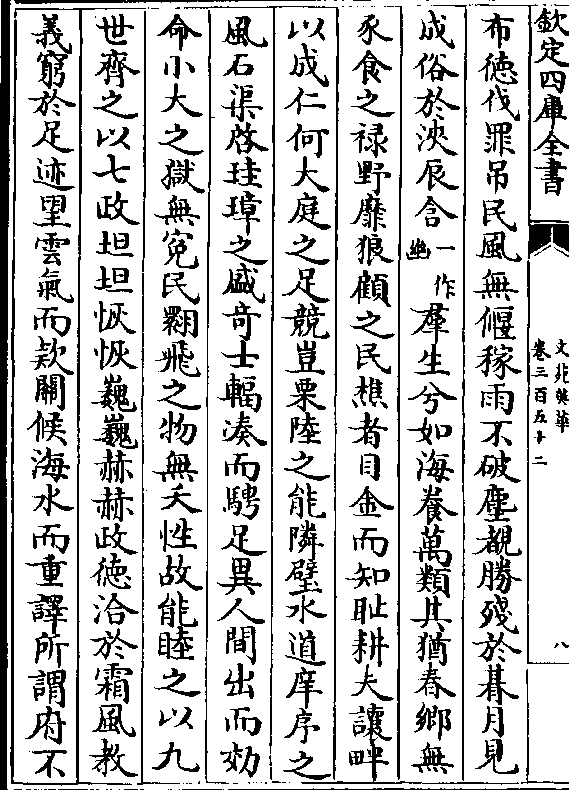 欽定四庫全書
文苑英華
卷三百五十二
八
布徳伐罪吊民風無偃稼雨不破塵覩勝殘於朞月見
成俗於浹辰含一作幽羣生兮如海養萬類其猶春鄉無
豕食之禄野靡狼顧之民樵者目金而知恥耕夫讓畔
以成仁何大庭之足競豈栗陸之能隣璧水道庠序之
風石渠啓珪璋之盛竒士輻湊而騁足異人間出而効
命小大之獄無寃民翾飛之物無夭性故能睦之以九
世齊之以七政坦坦恢恢巍巍赫赫政徳洽於霜風教
義窮於足迹望雲氣而款闗候海水而重譯所謂府不